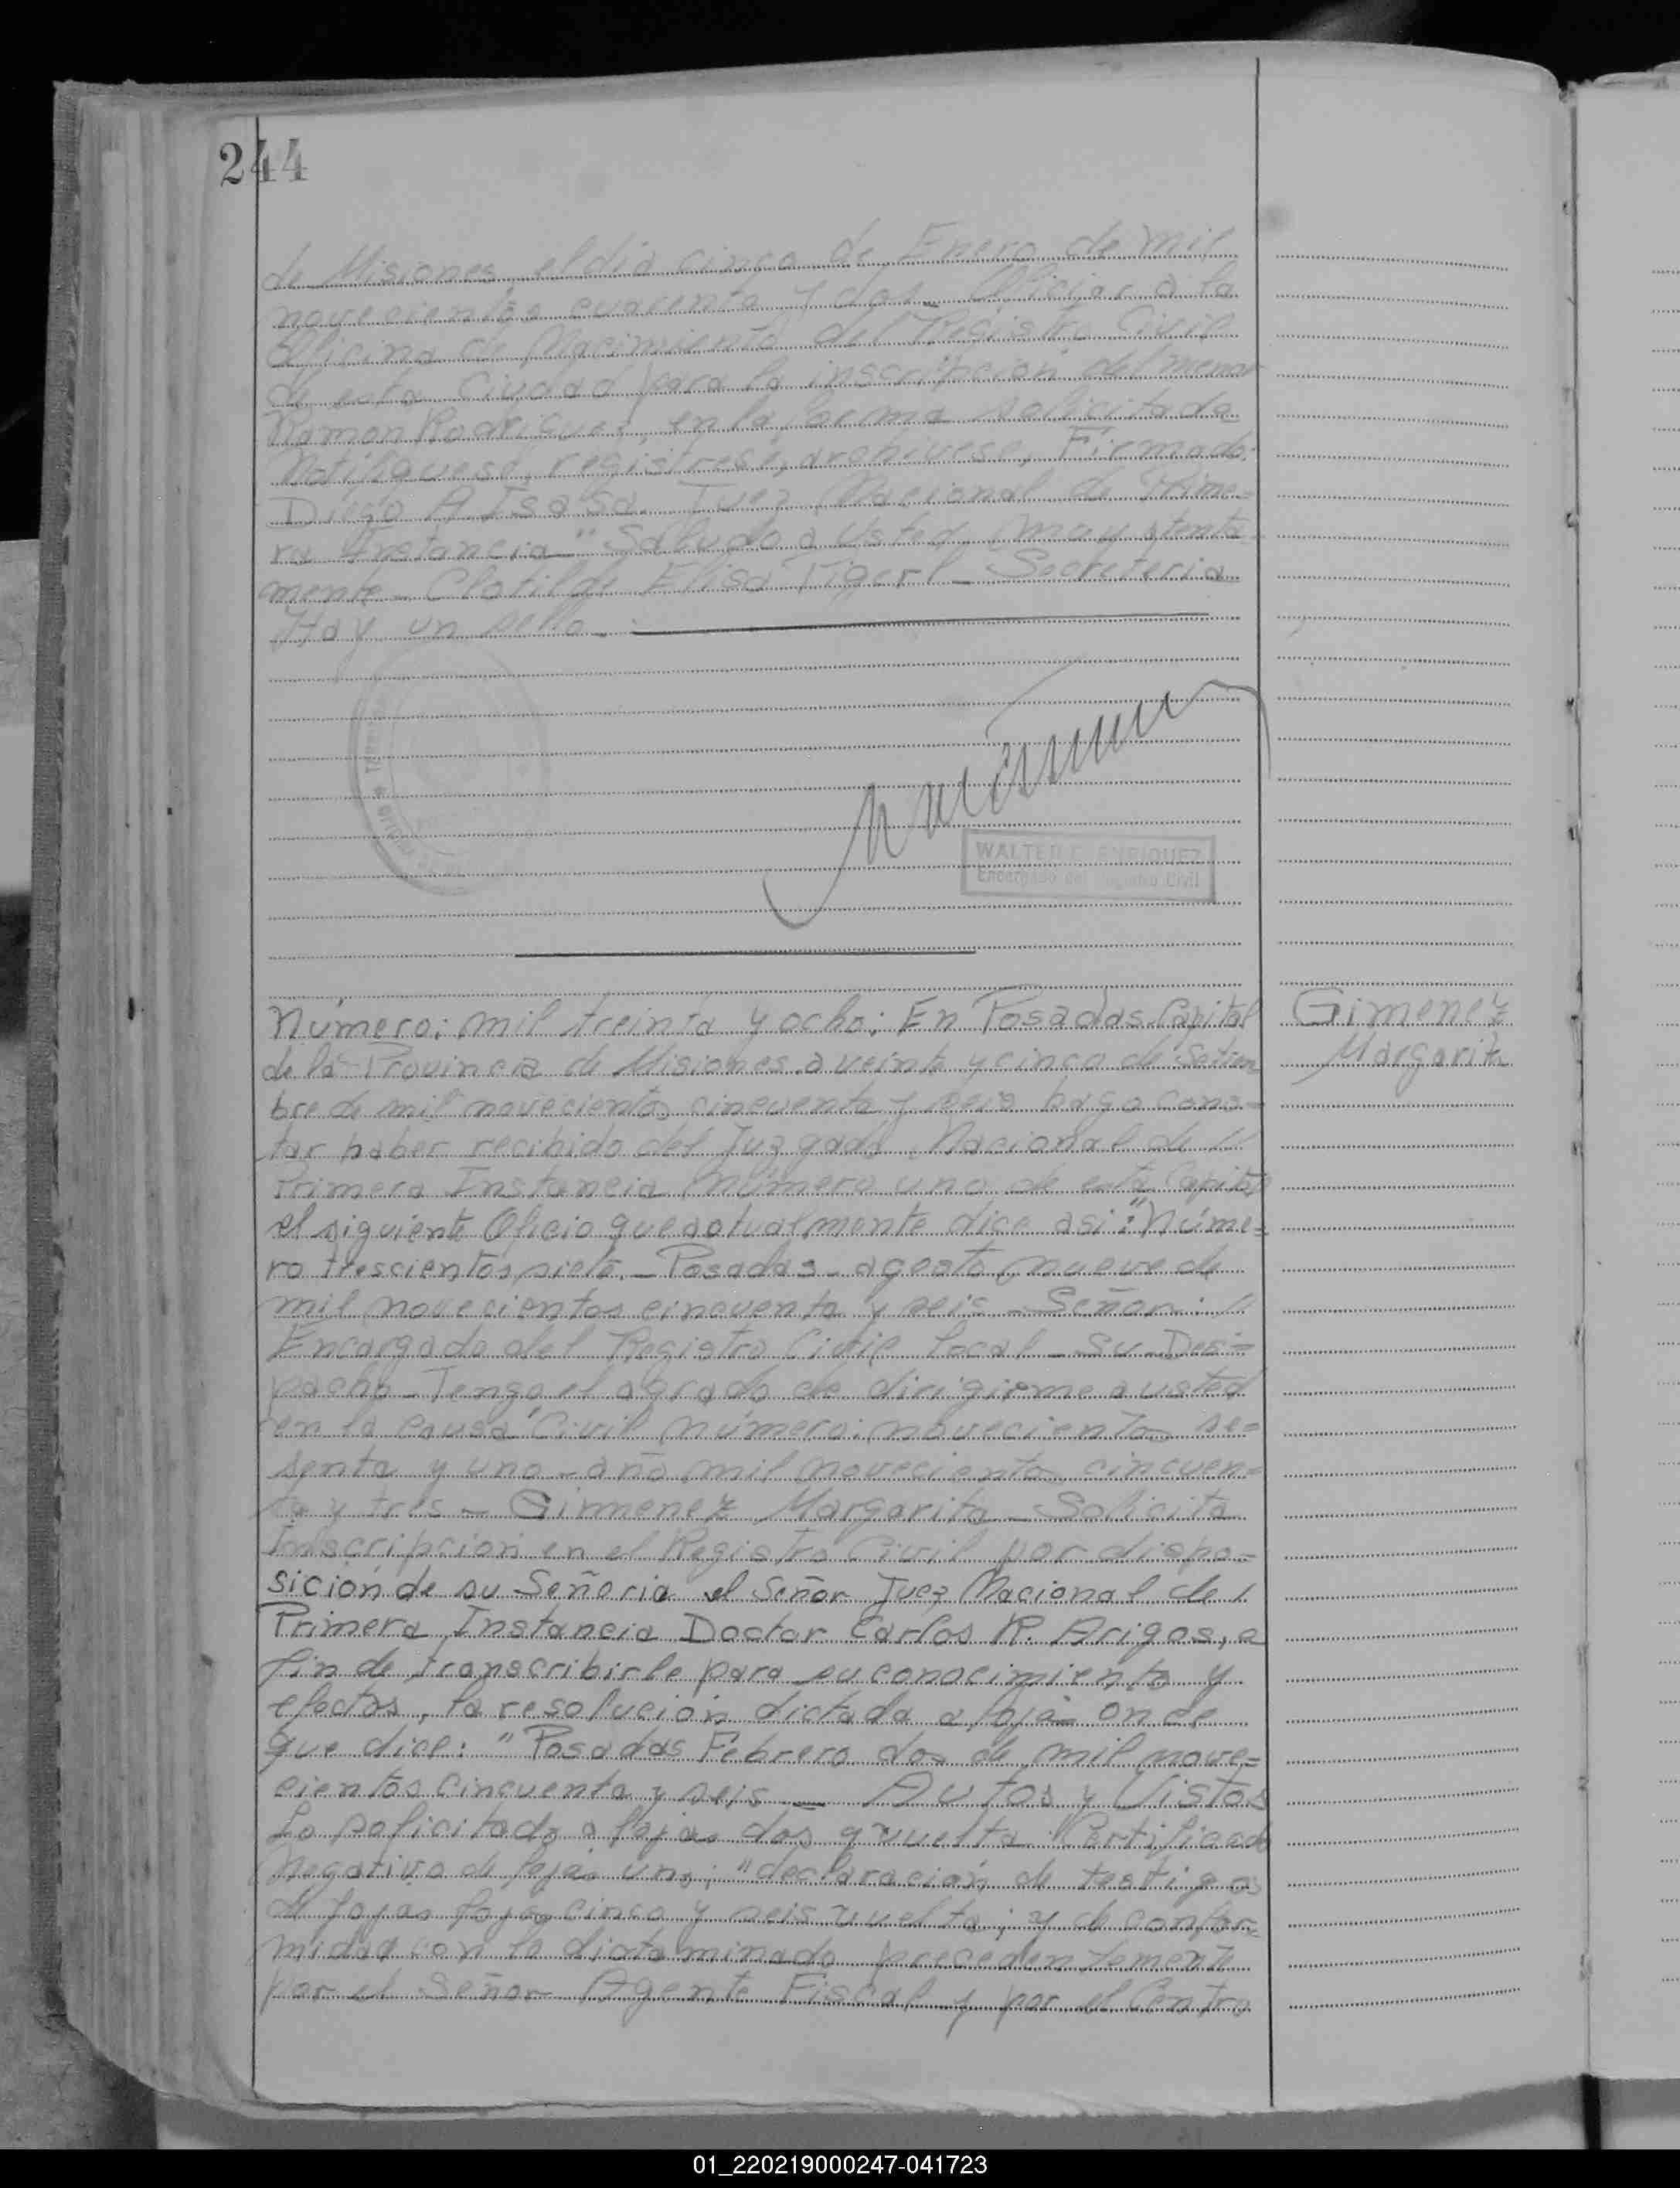 244
de Misiones, el día cinco de Enero de mil
novecientos cuarenta y dos_ Oficiar a la
Oficina de Nacimiento del Registro Civil
de esta Ciudad para la inscripción del menor
Ramon Rodriguez, en la forma solicitada
Notifiquese, registrese, archivese, Firmado:
Diego A Isasa. Juez Nacional de Prime=
ra Instancia" Saludo a Usted muy atenta
mente_ Clotilde Elisa Tigerl_ Secreteria
Hay un sello_
WALTER E. ENRIQUEZ
Encargado del Registro Civil
Número: mil treinta y ocho: En Posadas Capital
de la Provincia de Misiones a veinte y cinco de Setiem
bre de mil novecientos cincuenta y seis hago cons=
tar haber recibido del Juzgado Nacional de //
Primera Instancia Número uno de esta Capital
el siguiente Oficio que actualmente dice asi: "Núme=
ro trescientos siete._ Posadas_ agosto nueve de
mil novecientos cincuenta y seis_ Señor: //
Encargado del Registro Civil Local_ Su Des=
pacho_ Tengo el agrado de dirigirme a usted
en la causa Civil número: novecientos se=
senta y uno_ año mil novecientos cincuen=
ta y tres_ Gimenez Margarita_ Solicita
Inscripcion en el Registro Civil por dispo=
sición de su Señoria el Señor Juez Nacional de /
Primera Instancia Doctor Carlos R. Arigos, a
fin de transcribirle para su conocimiento y
efectos, la resolución dictada a foja onde
que dice: "Posadas Febrero dos de mil nove=
cientos cincuenta y seis_ Autos y Vistos
Lo solicitado a fojas dos y vuelta Certificado
Negativo de foja uno; "declaración de testigos
de fojas fojas cinco y seis vuelta; y de confor=
midad con lo dictaminado precedentemente
por el Señor Agente Fiscal y por el Centro
Gimenez
Margarita
01_220219000247-041723